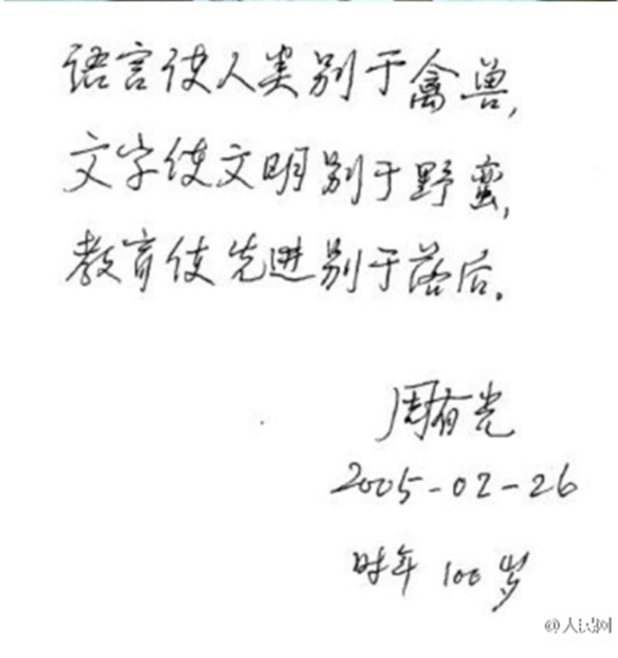 语言使人类别于禽兽,
文字使文明别于野蛮,
教育使先进别于落后.
周有光
2005-02-26
时年 100 岁
@人民网